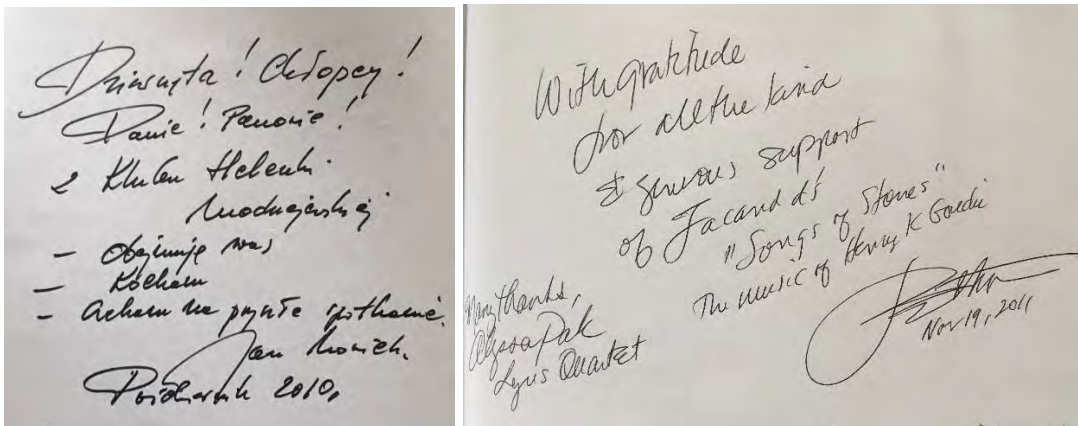 Dziewczęta! Chłopcy!
Panie! Panowie!
z Klubu Helenki
Modrzejewskiej
- obejmuję was
- Kocham
- czekam na przyszłe spotkanie.
Jan
Październik 2010.
With gratitude
for all the kind
& generous support
of Jacaranda's
"Songs of Stones"
The music of Henryk Gorecki
Nov 19, 2011
Many thanks,
Alyssa Pak
Lyris Quartet